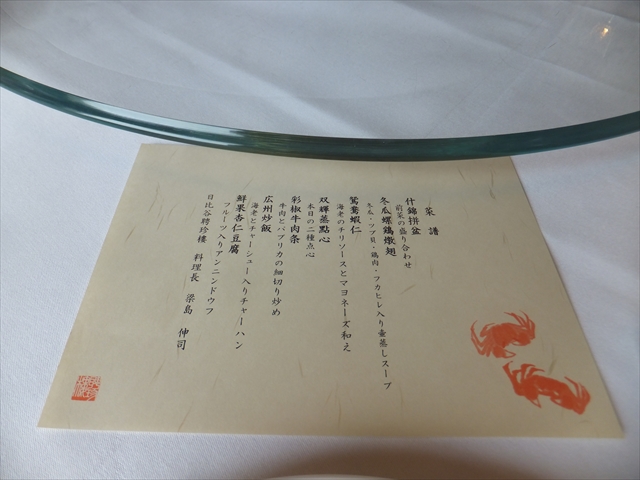 菜譜
什錦拼盆
前菜の盛り合わせ
冬瓜螺鶏燉翅
冬瓜・ツブ貝・鶏肉・フカヒレ入り壷蒸しスープ
鴛鴦蝦仁
海老のチリソースとマヨネーズ和え
双輝蒸點心
本日の二種点心
彩椒牛肉条
牛肉とパプリカの細切り炒め
広州炒飯
海老とチャーシュー入りチャーハン
鮮果杏仁豆腐
フルーツ入りアンニンドウフ
日比谷聘珍樓 料理長 梁島 伸司